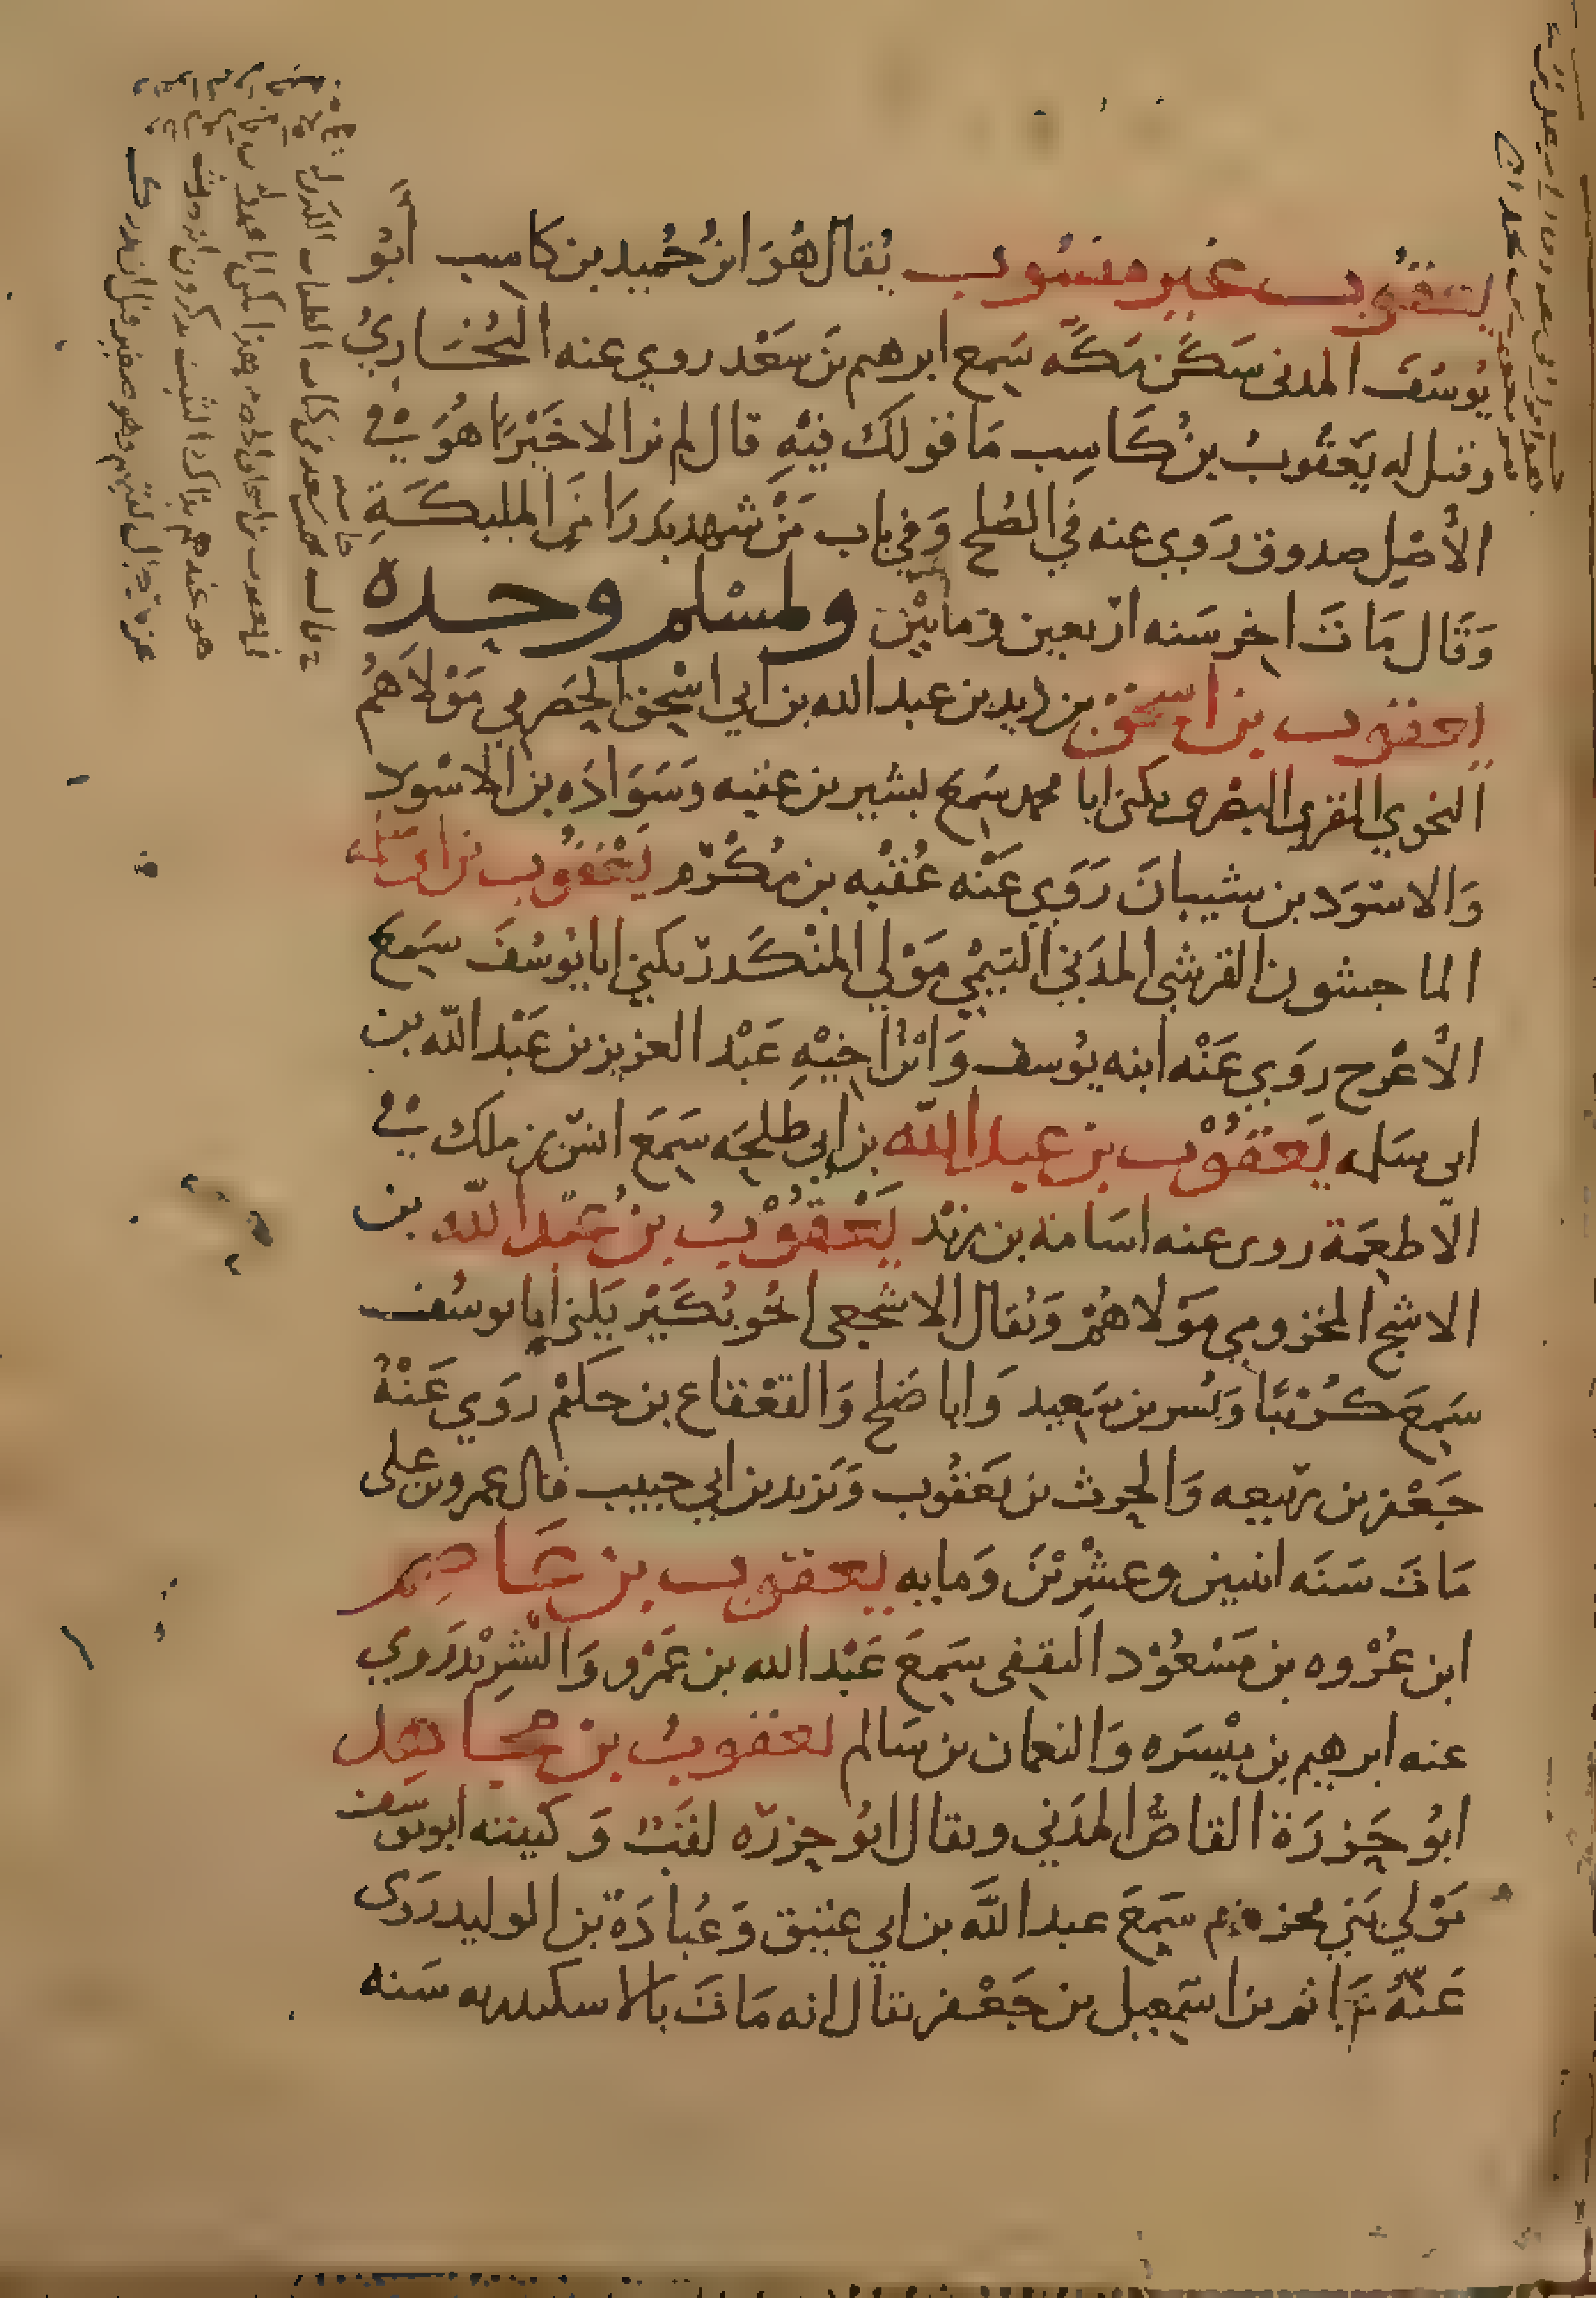 يعقوب غير منسوب يقال هو ابن حُميد بن كاسِب ابُو
يُوسُف المدنى سَكَن مَكَّه سَمِع ابرهيم بن سَعْد روي عنه البُخَاريُّ
وقيل له يَعْقُوبُ بنُ كَاسِب مَا قولك فيْهِ قال لم نر الا خَيْرًا هُوَ في
الأصْلِ صدوق رَوَي عنه في الصُلح وَفي باب مَنْ شهد بَدرًا مِنَ المليكَةِ
وَقَال مَاتَ اخر سَنه اربعين ومايتَيْن ولمسْلمٍ وحده
يعقوب بن اسحٰق بن زيد بن عبد الله بن ابي اسْحٰق الحَضرمي مَوْلاَهُم
النحوي المقرى البصرى يكنى ابا محمد سَمِعَ بشير بن عقبه وَسَوَادَه بن الاسْود
وَالاسْوَد بن شيبانَ رَوَي عَنْه عُقْبَه بن مُكْرَم يَعْقُوب بن ابى سَلمه
الماجشون القرشي المدَني التيْمِي مَوْلي المنْكَدر يكنى ابا يُوسُفَ سَمِعَ
الأعْرج روَي عَنْه ابنه يوُسف وَابْنُ اخيْهِ عَبْد العزيز بن عَبْد الله بن
ابى سَلمه يَعْقُوْب بن عبد الله بن ابي طلحَه سَمِعَ انسَ بن ملك في
الاطعِمَة روى عنه اسَامَة بن زيْد يَعْقُوْبُ بنُ عَبْد الله بن
الاشج المخزومي مَوْلاهُمْ وَيُقال الاشجعى اخُو بُكَيْر يكنى ابا يوسُف
سَمِعَ كُرَيْبًا وَبُسر بن سَعِيد وَابا صَلح وَالقَعْقاع بن حكيمْ روَي عَنْهُ
جَعْفر بن رَبيعه وَالحرث بن يَعْقُوب وَيَزيد بن ابي حبيب قال عمرو بن على
مَاتَ سَنَه اثنين وعشْرِيْنَ وَمايه يعقوب بن عَاصِم
ابن عُرْوه بن مَسْعُوْد الثقفى سَمِعَ عَبْد الله بن عَمْرو وَالشَّرِيْد رَوي
عنه ابرهيم بن ميْسَره وَالنعمان بن سَالم يعقوبُ بن مجَاهد
ابُو حَزرَة القاصُّ المدَني ويقال ابُو حزرَه لقبٌ وَكنيته ابو يوسُف
مَوْلي بَني مخزوم سَمِعَ عبد اللَّه بن ابي عتيق وَعُبادَة بن الوليد رَوَى
عَنْهُ حَاتم بن اسمعيل بن جَعْفر يقال انه مَاتَ بالاسكندريه سَنه